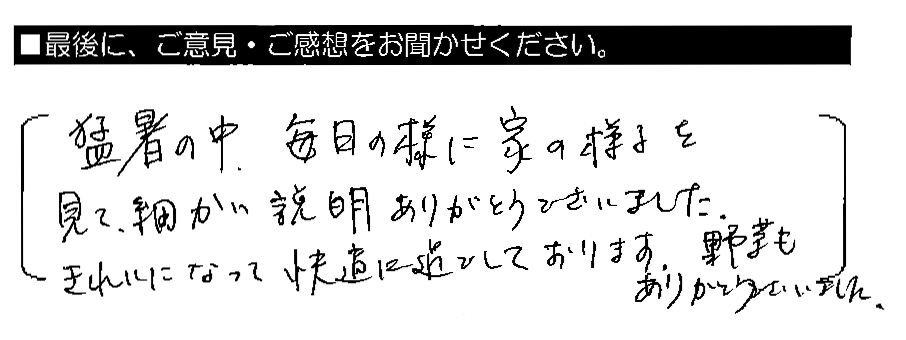 ■最後に、ご意見・ご感想をお聞かせください。
猛暑の中、毎日の様に家の様子を
見て、細かい説明ありがとうございました。
きれいになって快適に過ごしております。野菜も
ありがとうございました。